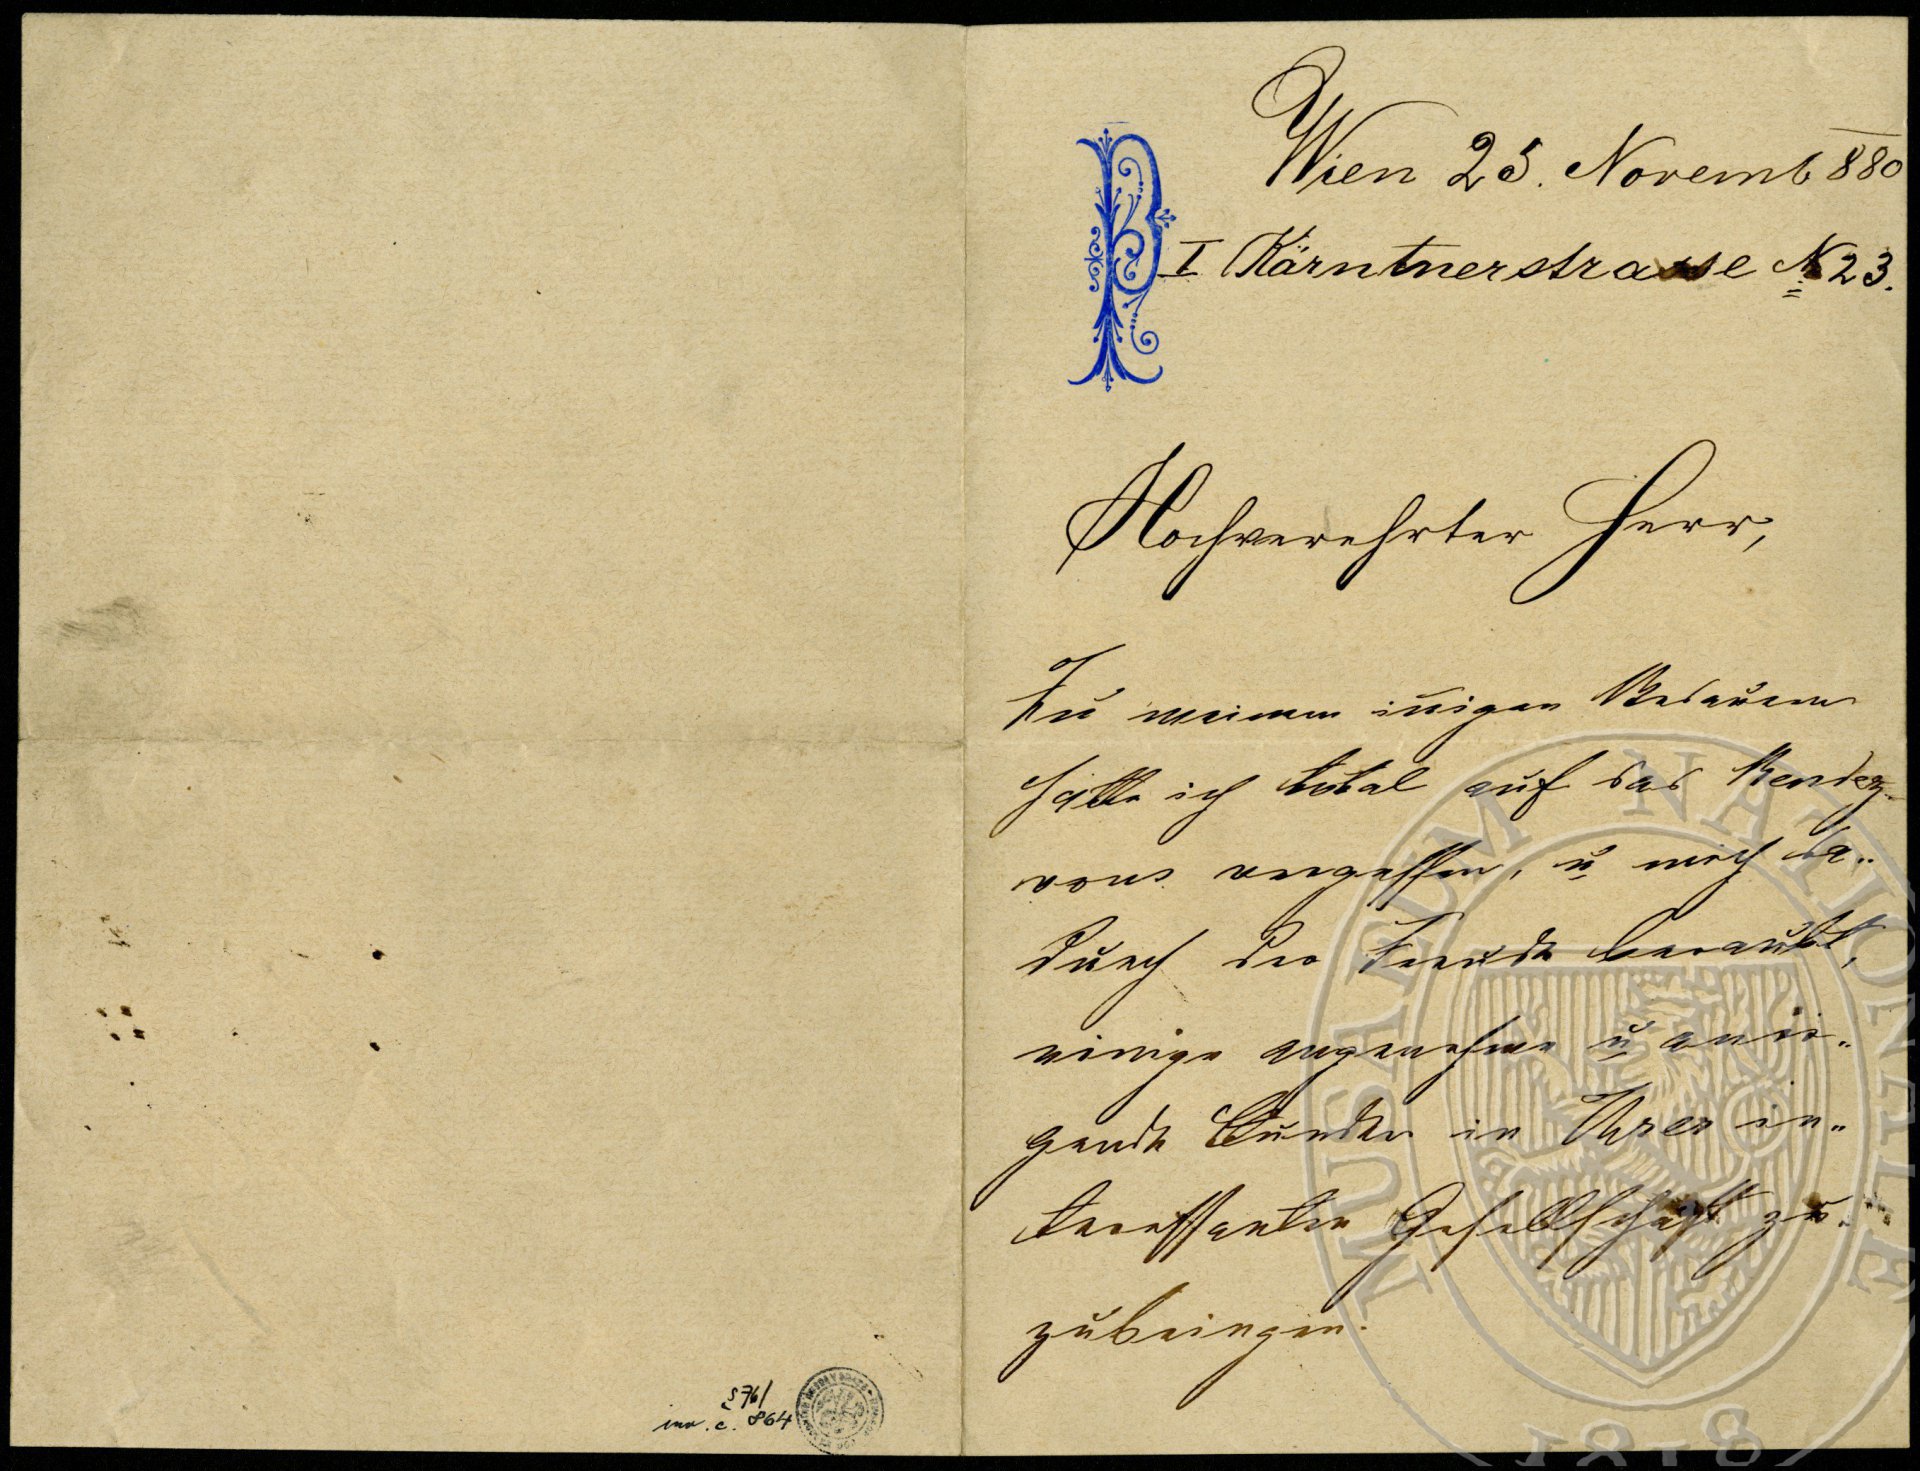 Wien 25. Novemb 880
I Kärntnerstrasse N 23.
Hochverehrter Herr,
Zu meinem innigen Bedauern
hatte ich total auf das Rendez-
vous vergessen, u mich da-
durch der Freude beraubt,
einige angenehme u anre-
gende Stunden in Ihrer in-
teressanten Gesellschaft zu-
zubringen.
S 76/
inv. c. 864
MUSAEUM NATIONALE
1818